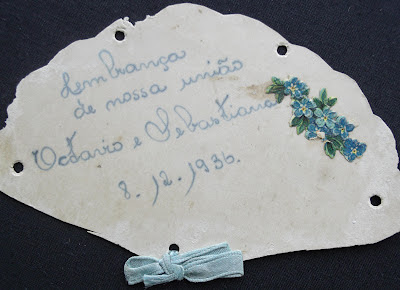 Lembrança
de nossa união
Octavio e Sebastiana
8.12.936.